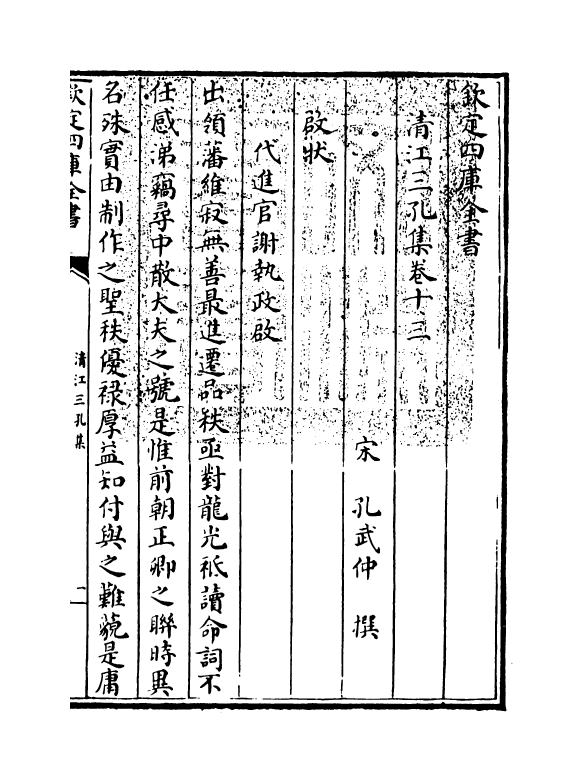 欽定四庫全書
清江三孔集卷十三
宋 孔武仲 撰
啟狀
代進官謝執政啟
出領藩維寂無善最進遷品秩亟對龍光祗讀命詞不
任感涕竊尋中散大夫之號是惟前朝正卿之聯時異
名殊實由制作之聖秩優祿厚益知付與之難藐是庸
欽定四庫全書
清江三孔集
一